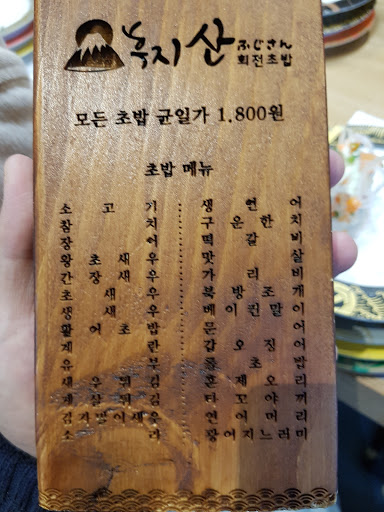 후지산
ふじさん
회전초밥
모든 초밥 균일가 1.800원
초밥 메뉴
소고기 생연어
참치 구운한치
장어 떡갈비
왕초새우 맛살
간장새우 가리비
초새우 북방조개
생새우 베이컨말이
활어초밥 문어
계란 갑오징어
유부 롤초밥
새우튀김 훈제오리
타꼬야끼
연어머리
소라 광어지느러미